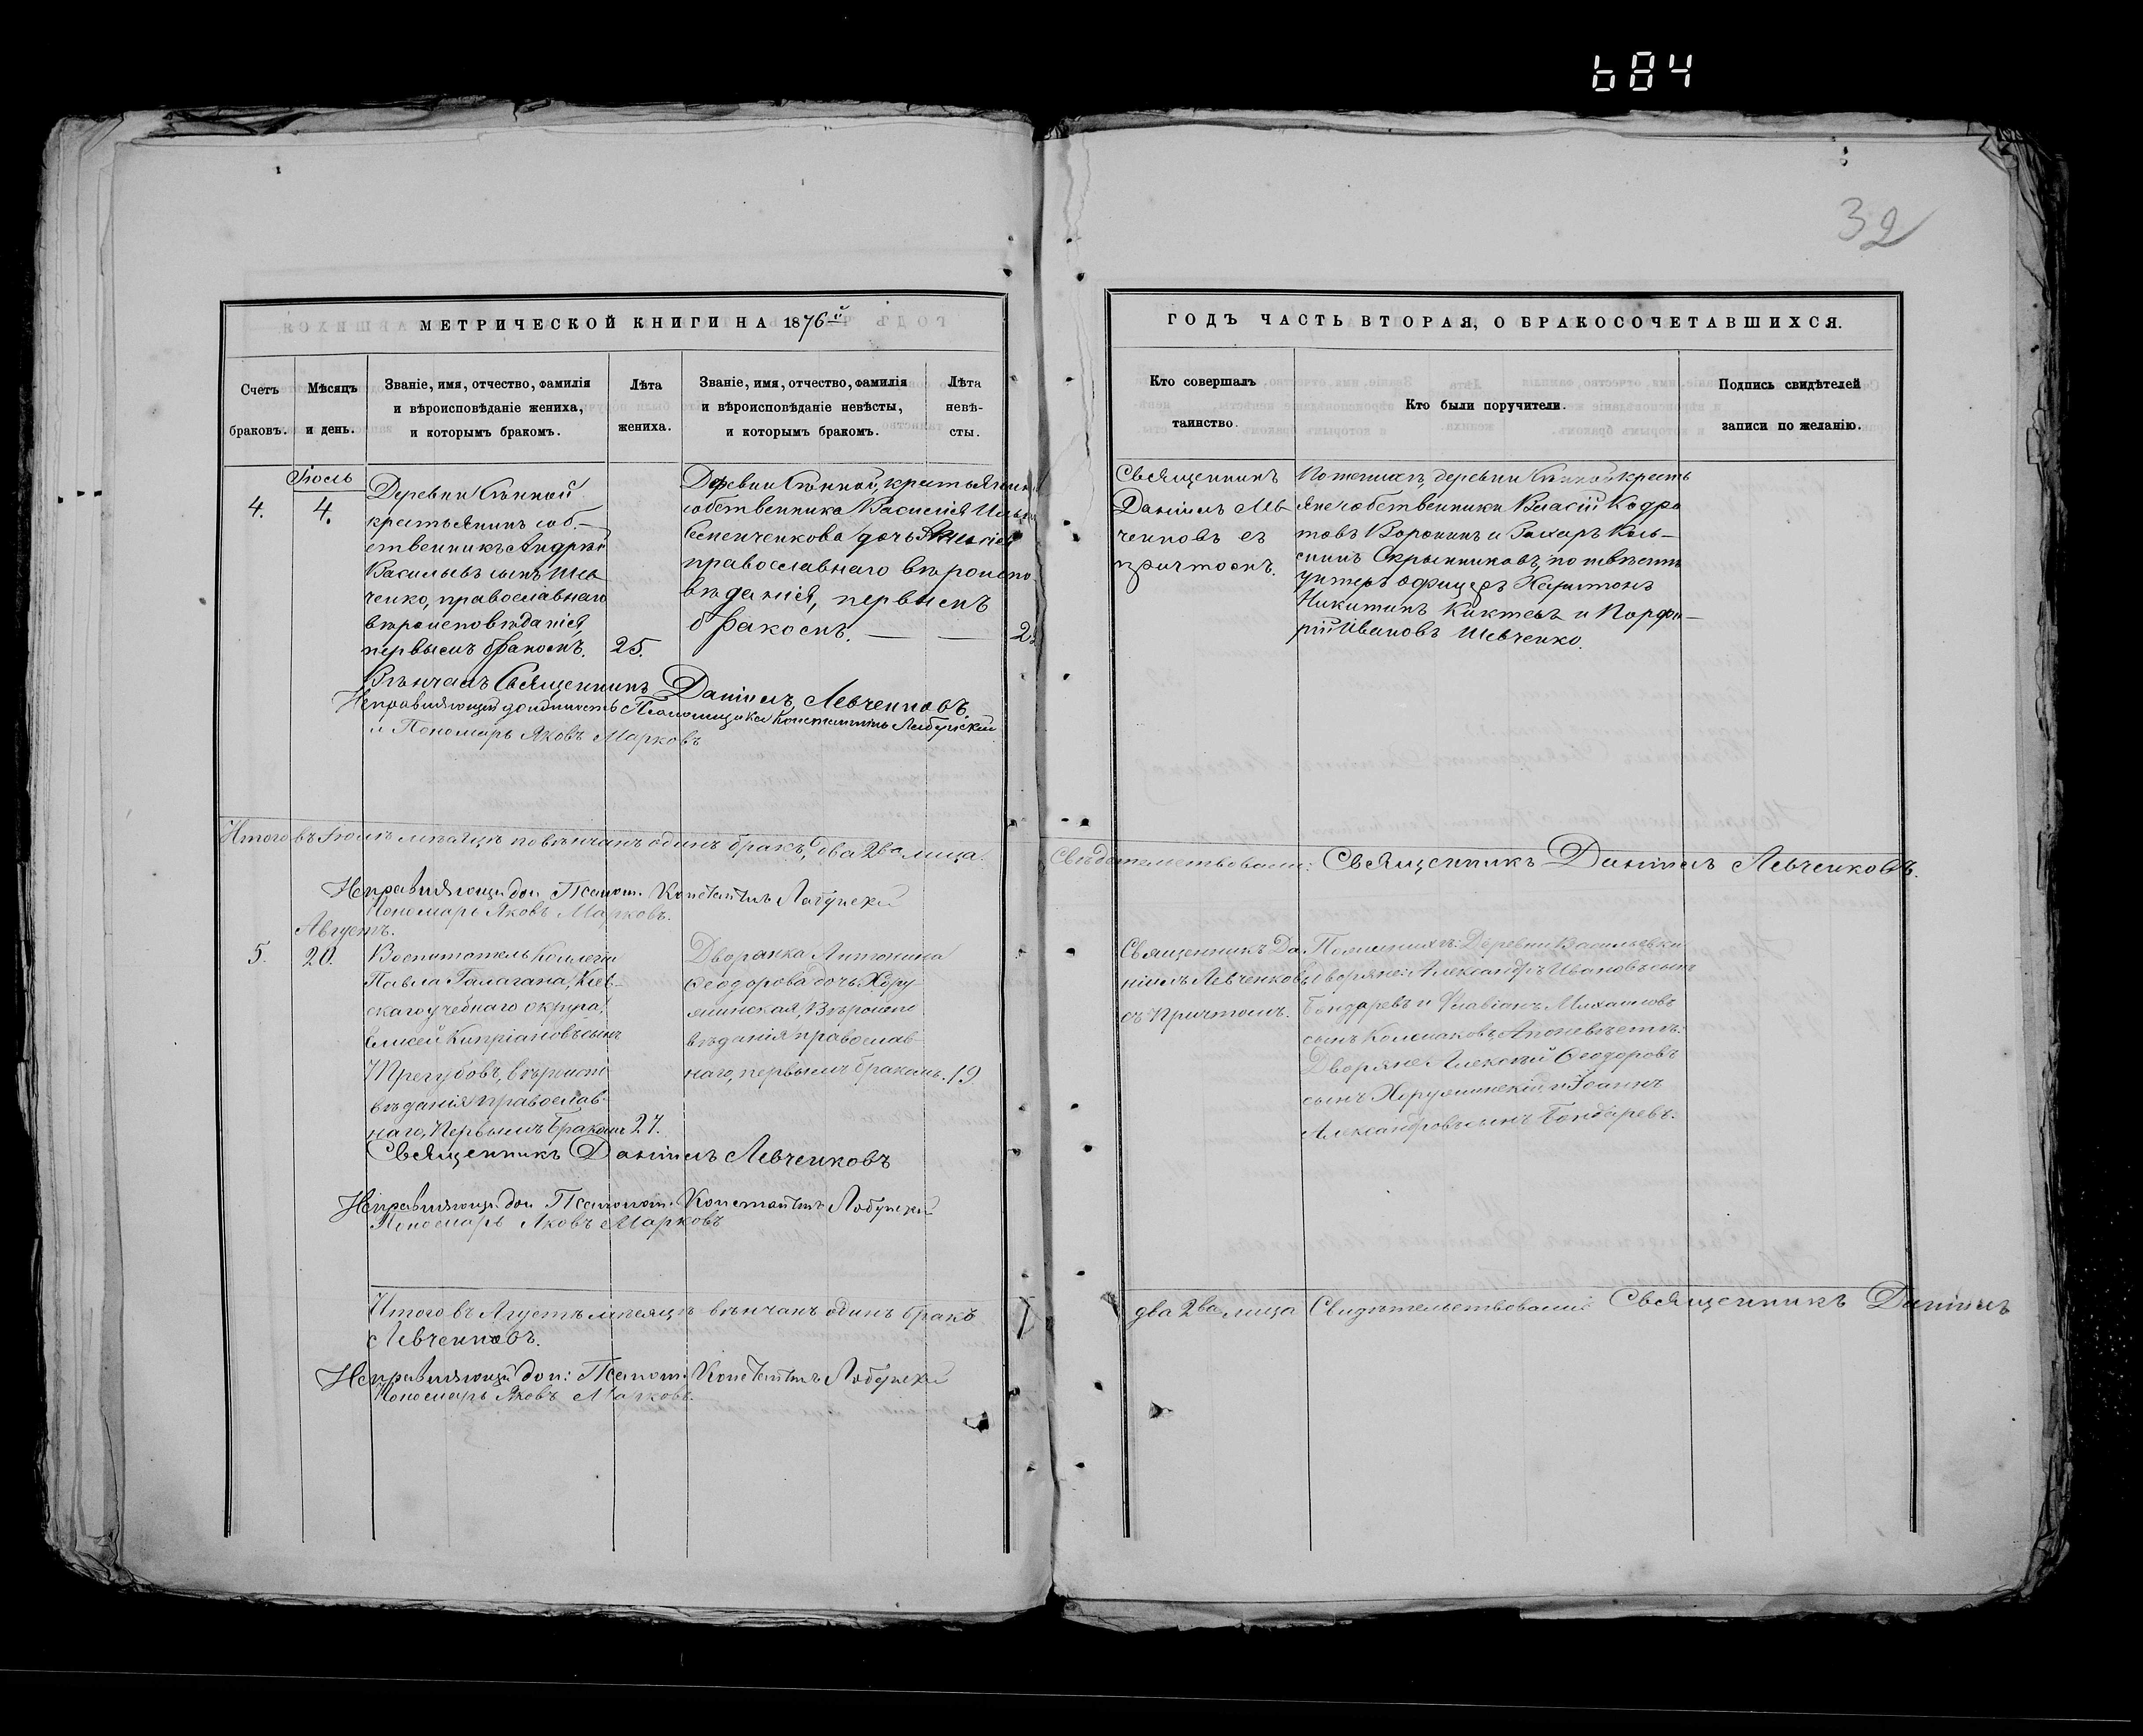 684
32
МЕТРИЧЕСКОЙ КНИГИ НА 1876й
Счетъ браковъ.
Мѣсяцъ и день.
Званіе, имя, отчество, фамилія и вѣроисповѣданіе жениха, и которымъ бракомъ.
Лѣта жениха.
Званіе, имя, отчество, фамилія и вѣроисповѣданіе невѣсты, и которымъ бракомъ.
Лѣта невѣ-сты.
Іюль
4.
4.
Деревни
крестьянинъ соб-
ственникъ Андрей
Васильевъ сынъ Шев
ченко, православнаго
вѣроисповѣданія
первымъ бракомъ.
25.
Деревни
собственника Василія
Семенченкова дочь
православнаго вѣроиспо-
вѣданія, первымъ
бракомъ. — —
Вѣнчалъ Священникъ Даніилъ Левченковъ.
Исправляющій должность Псаломщика Константинъ
и Пономарь Яковъ Марковъ
Итого въ Іюлѣ мѣсяцѣ повѣнчанъ одинъ бракъ, два 2ва лица.
Исправляющій дол. Псалом. Константинъ
Пономарь Яковъ Марковъ.
Августъ.
5.
20.
Воспитатель Коллегіи
Павла Галагана, Кіев-
скаго учебнаго округа,
Елисей Кипріановъ сынъ
Трегубовъ, вѣроиспо
вѣданія православ-
наго, Первымъ бракомъ
27.
Дворянка Антонина
Феодорова дочь Хору
жинская, Вѣроиспо
вѣданія православ-
наго, первымъ бракомъ.
19
Священникъ Даніилъ Левченковъ
Исправляющ. дол. Псалом. Константинъ
Пономарь Яковъ Марковъ
Итого въ Августѣ мѣсяцѣ вѣнчанъ одинъ бракъ
Левченковъ.
Исправляющій дол: Псалом. Константинъ
Пономарь Яковъ Марковъ.
ГОДЪ ЧАСТЬ ВТОРАЯ, О БРАКОСОЧЕТАВШИХСЯ.
Кто совершалъ таинство.
Кто были поручители.
Подпись свидѣтелей записи по желанію.
Священникъ
Даніилъ Лев
ченковъ съ
причтомъ.
По женихѣ, деревни кресть
яне собственники Власій Кодра
товъ Воронинъ и Захаръ
Скрынниковъ, по невѣстѣ
унтеръ офицеръ Харитонъ
Никитинъ и Порфи-
рій Ивановъ Шевченко.
Свѣдѣтельствовали: Священникъ Даніилъ Левченковъ.
Священникъ Да
ніилъ Левченковъ
съ Причтомъ.
По женихѣ: Деревни Васильевки
дворяне: Александръ Ивановъ сынъ
Бондаревъ и Флавіанъ Михаиловъ
сынъ Колмаковъ, А по невѣстѣ:
Дворяне Алексѣй Феодоровъ
сынъ Хоружинскій, и Іоаннъ
Александровъ сынъ Бондаревъ.
два 2ва лица Свидѣтельствовали Священникъ Даніилъ